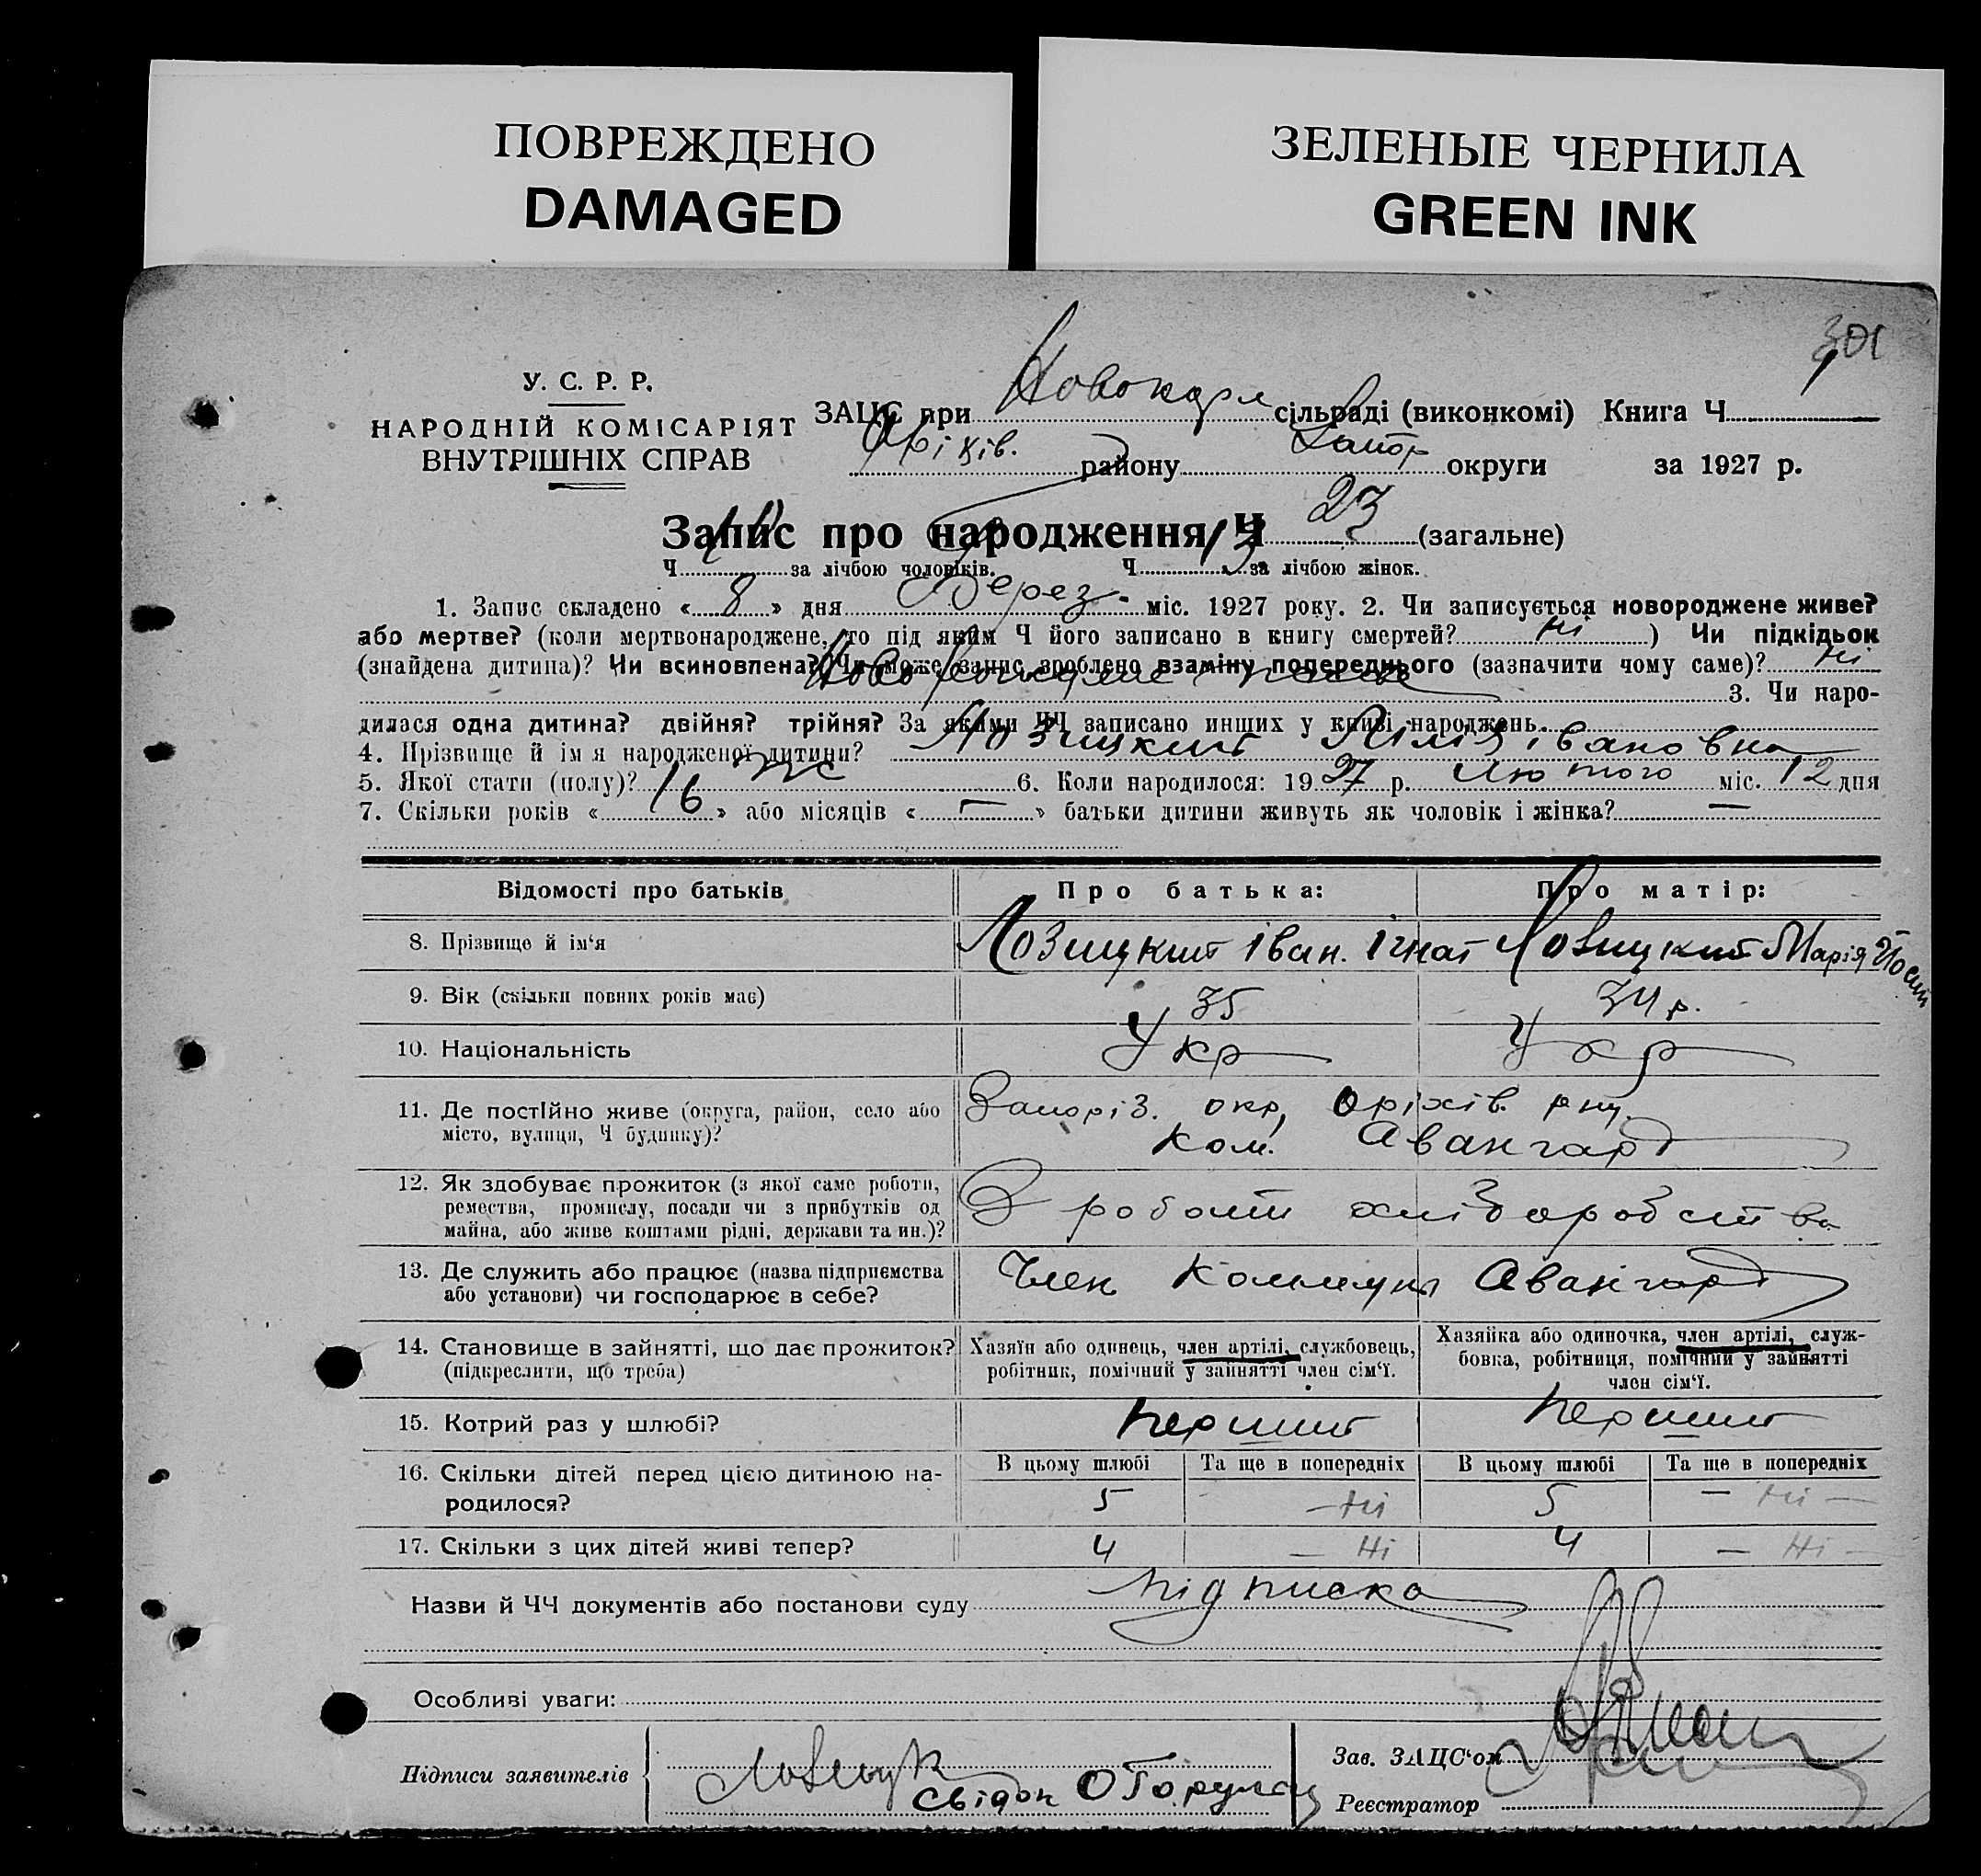 ПОВРЕЖДЕНО
DAMAGED
ЗЕЛЕНЫЕ ЧЕРНИЛА
GREEN INK
301
У. С. Р. Р.
НАРОДНІЙ КОМІСАРІЯТ
ВНУТРІШНІХ СПРАВ
ЗАЦС при Новокарл сільраді (виконкомі) Книга Ч
Оріхів. району Запор округи за 1927 р.
Запис про народження Ч 23 (загальне)
Ч 10 за лічбою чоловіків. Ч 13 за лічбою жінок.
1. Запис складено « 8 » дня Берез. міс. 1927 року. 2. Чи записується новороджене живе?
або мертве? (коли мертвонароджене, то під яким Ч його записано в книгу смертей? ні ) Чи підкідьок
(знайдена дитина)? Чи всиновлена? Чи може запис зроблено взаміну попереднього (зазначити чому саме)? ні
3. Чи наро-
дилася одна дитина? двійня? трійня? За якими ЧЧ записано инших у книзі народжень.
4. Прізвище й ім я народженої дитини? Лозицкий Лілія івановна
5. Якої стати (полу)? ж 6. Коли народилося: 1927 р. Лютого міс. 12 дня
7. Скільки років « 16 » або місяців « — » батьки дитини живуть як чоловік і жінка? —
Відомості про батьків Про батька: Про матір:
8. Прізвище й ім'я Лозицкий іван. ігнат Лозицкий Марія Йосип
9. Вік (скільки повних років має) 35 34 р.
10. Національність Укр Укр
11. Де постійно живе (округа, район, село або Запоріз. окр, Оріхів. рну.
місто, вулиця, Ч будинку)? Ком. Авангард
12. Як здобуває прожиток (з якої саме роботи,
ремества, промислу, посади чи з прибутків од З роботи хліборобства
майна, або живе коштами рідні, держави та ин.)?
13. Де служить або працює (назва підприємства Член Коммуни Авангард
або установи) чи господарює в себе?
14. Становище в зайнятті, що дає прожиток? Хазяїн або одинець, член артілі, службовець, Хазяйка або одиночка, член артілі, служ-
(підкреслити, що треба) робітник, помічний у зайнятті член сім'ї. бовка, робітниця, помічний у зайнятті
член сім'ї.
15. Котрий раз у шлюбі? перший перший
16. Скільки дітей перед цією дитиною на- В цьому шлюбі Та ще в попередніх В цьому шлюбі Та ще в попередніх
родилося? 5 — Ні 5 — Ні —
17. Скільки з цих дітей живі тепер? 4 — Ні 4 — Ні —
Назви й ЧЧ документів або постанови суду підписка
Особливі уваги:
Підписи заявителів Лозицк
Свідок О
Зав. ЗАЦС'ом
Реєстратор